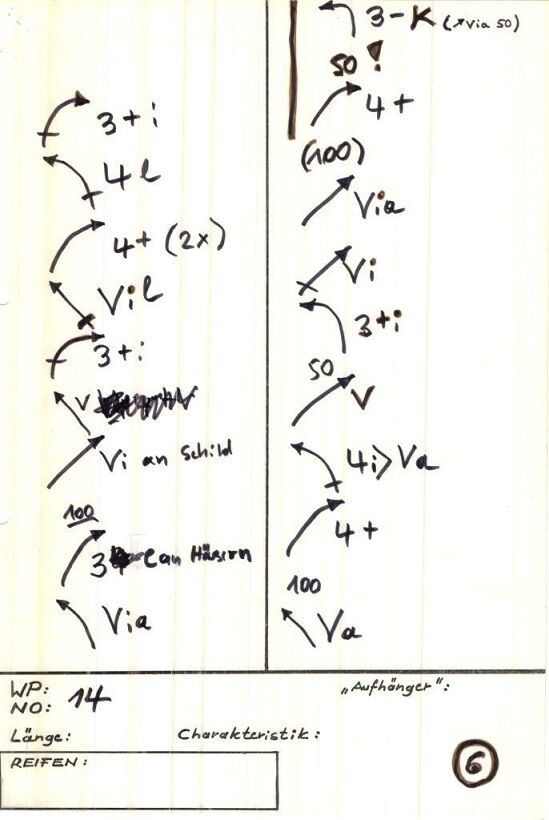 3+i
4l
4+ (2x)
Vil
3+i
V
Vi an Schild
100
3 an Häusern
Via
3-K (↗Via 50)
50!
4+
(100)
Via
Vi
3+i
50
V
4i>Va
4+
100
Va
WP:
NO: 14
„Aufhänger":
Länge: Charakteristik:
REIFEN:
6